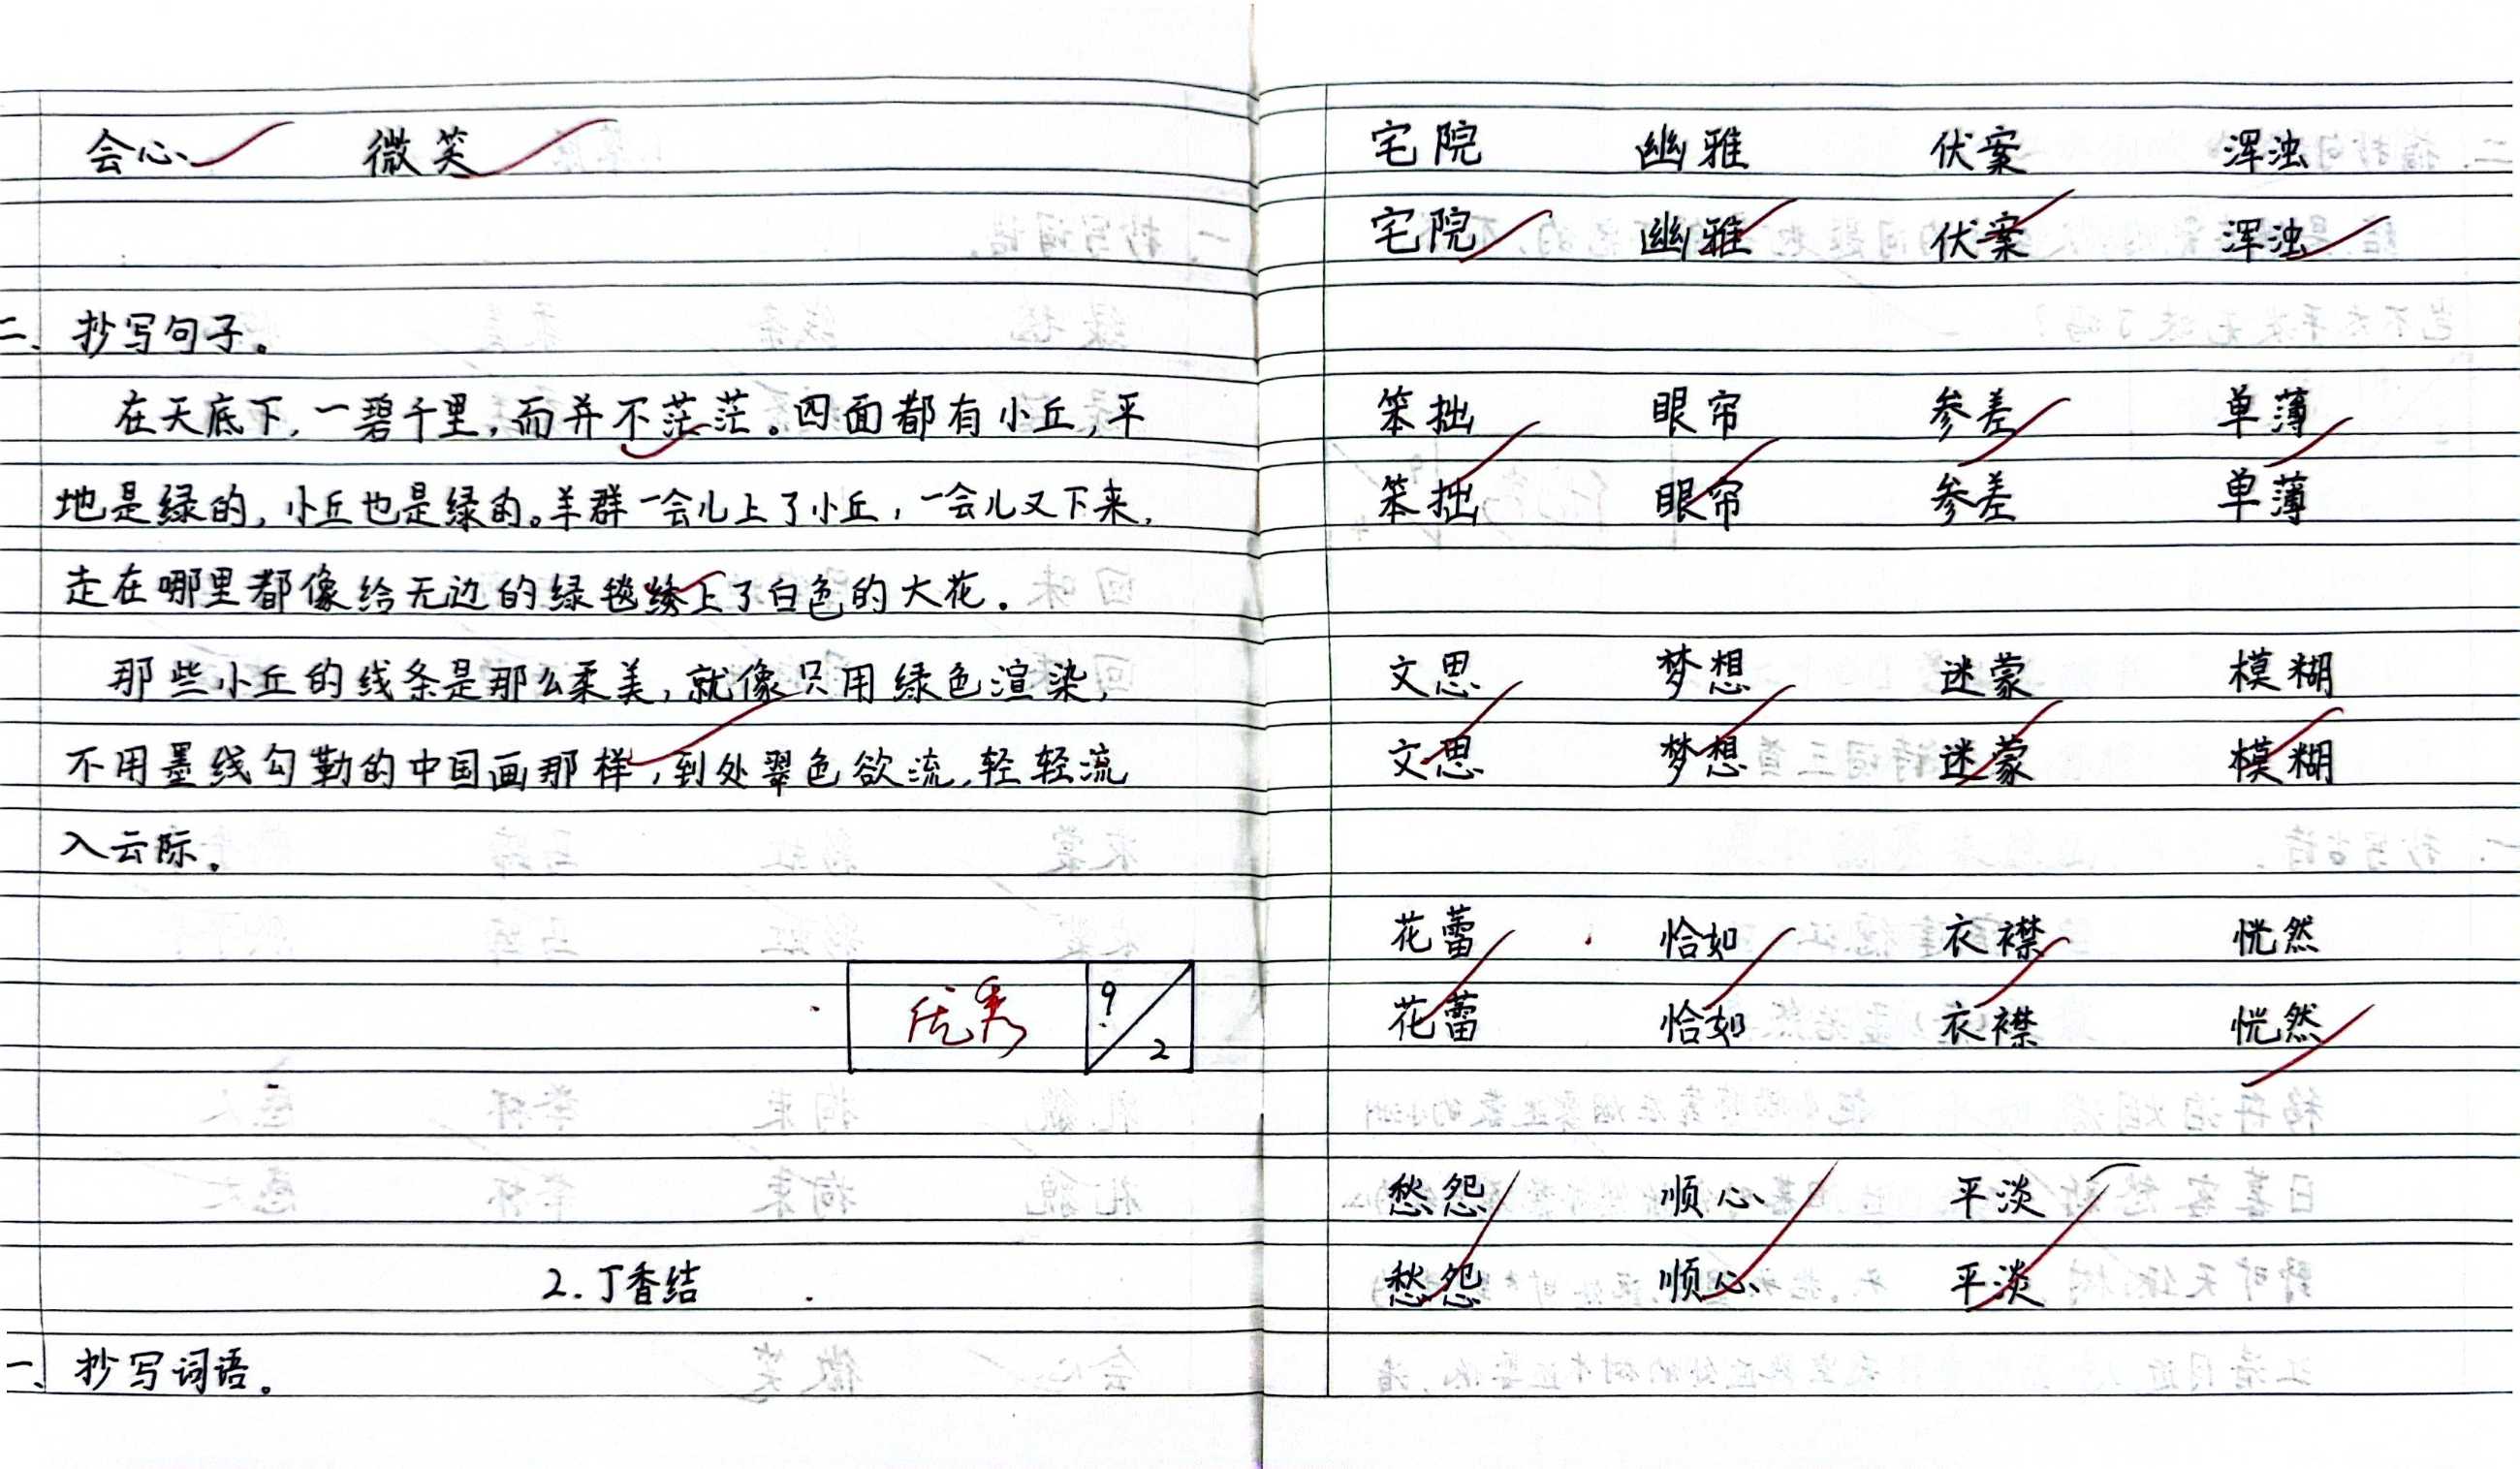 会心 微笑
二、抄写句子。
在天底下,一碧千里,而并不茫茫。四面都有小丘,平
地是绿的,小丘也是绿的。羊群一会儿上了小丘,一会儿又下来,
走在哪里都像给无边的绿毯绣上了白色的大花。
那些小丘的线条是那么柔美,就像只用绿色渲染,
不用墨线勾勒的中国画那样,到处翠色欲流,轻轻流
入云际。
优秀 9/2
2.丁香结
一、抄写词语。
宅院 幽雅 伏案 浑浊
宅院 幽雅 伏案 浑浊
笨拙 眼帘 参差 单薄
笨拙 眼帘 参差 单薄
文思 梦想 迷蒙 模糊
文思 梦想 迷蒙 模糊
花蕾 恰如 衣襟 恍然
花蕾 恰如 衣襟 恍然
愁怨 顺心 平淡
愁怨 顺心 平淡